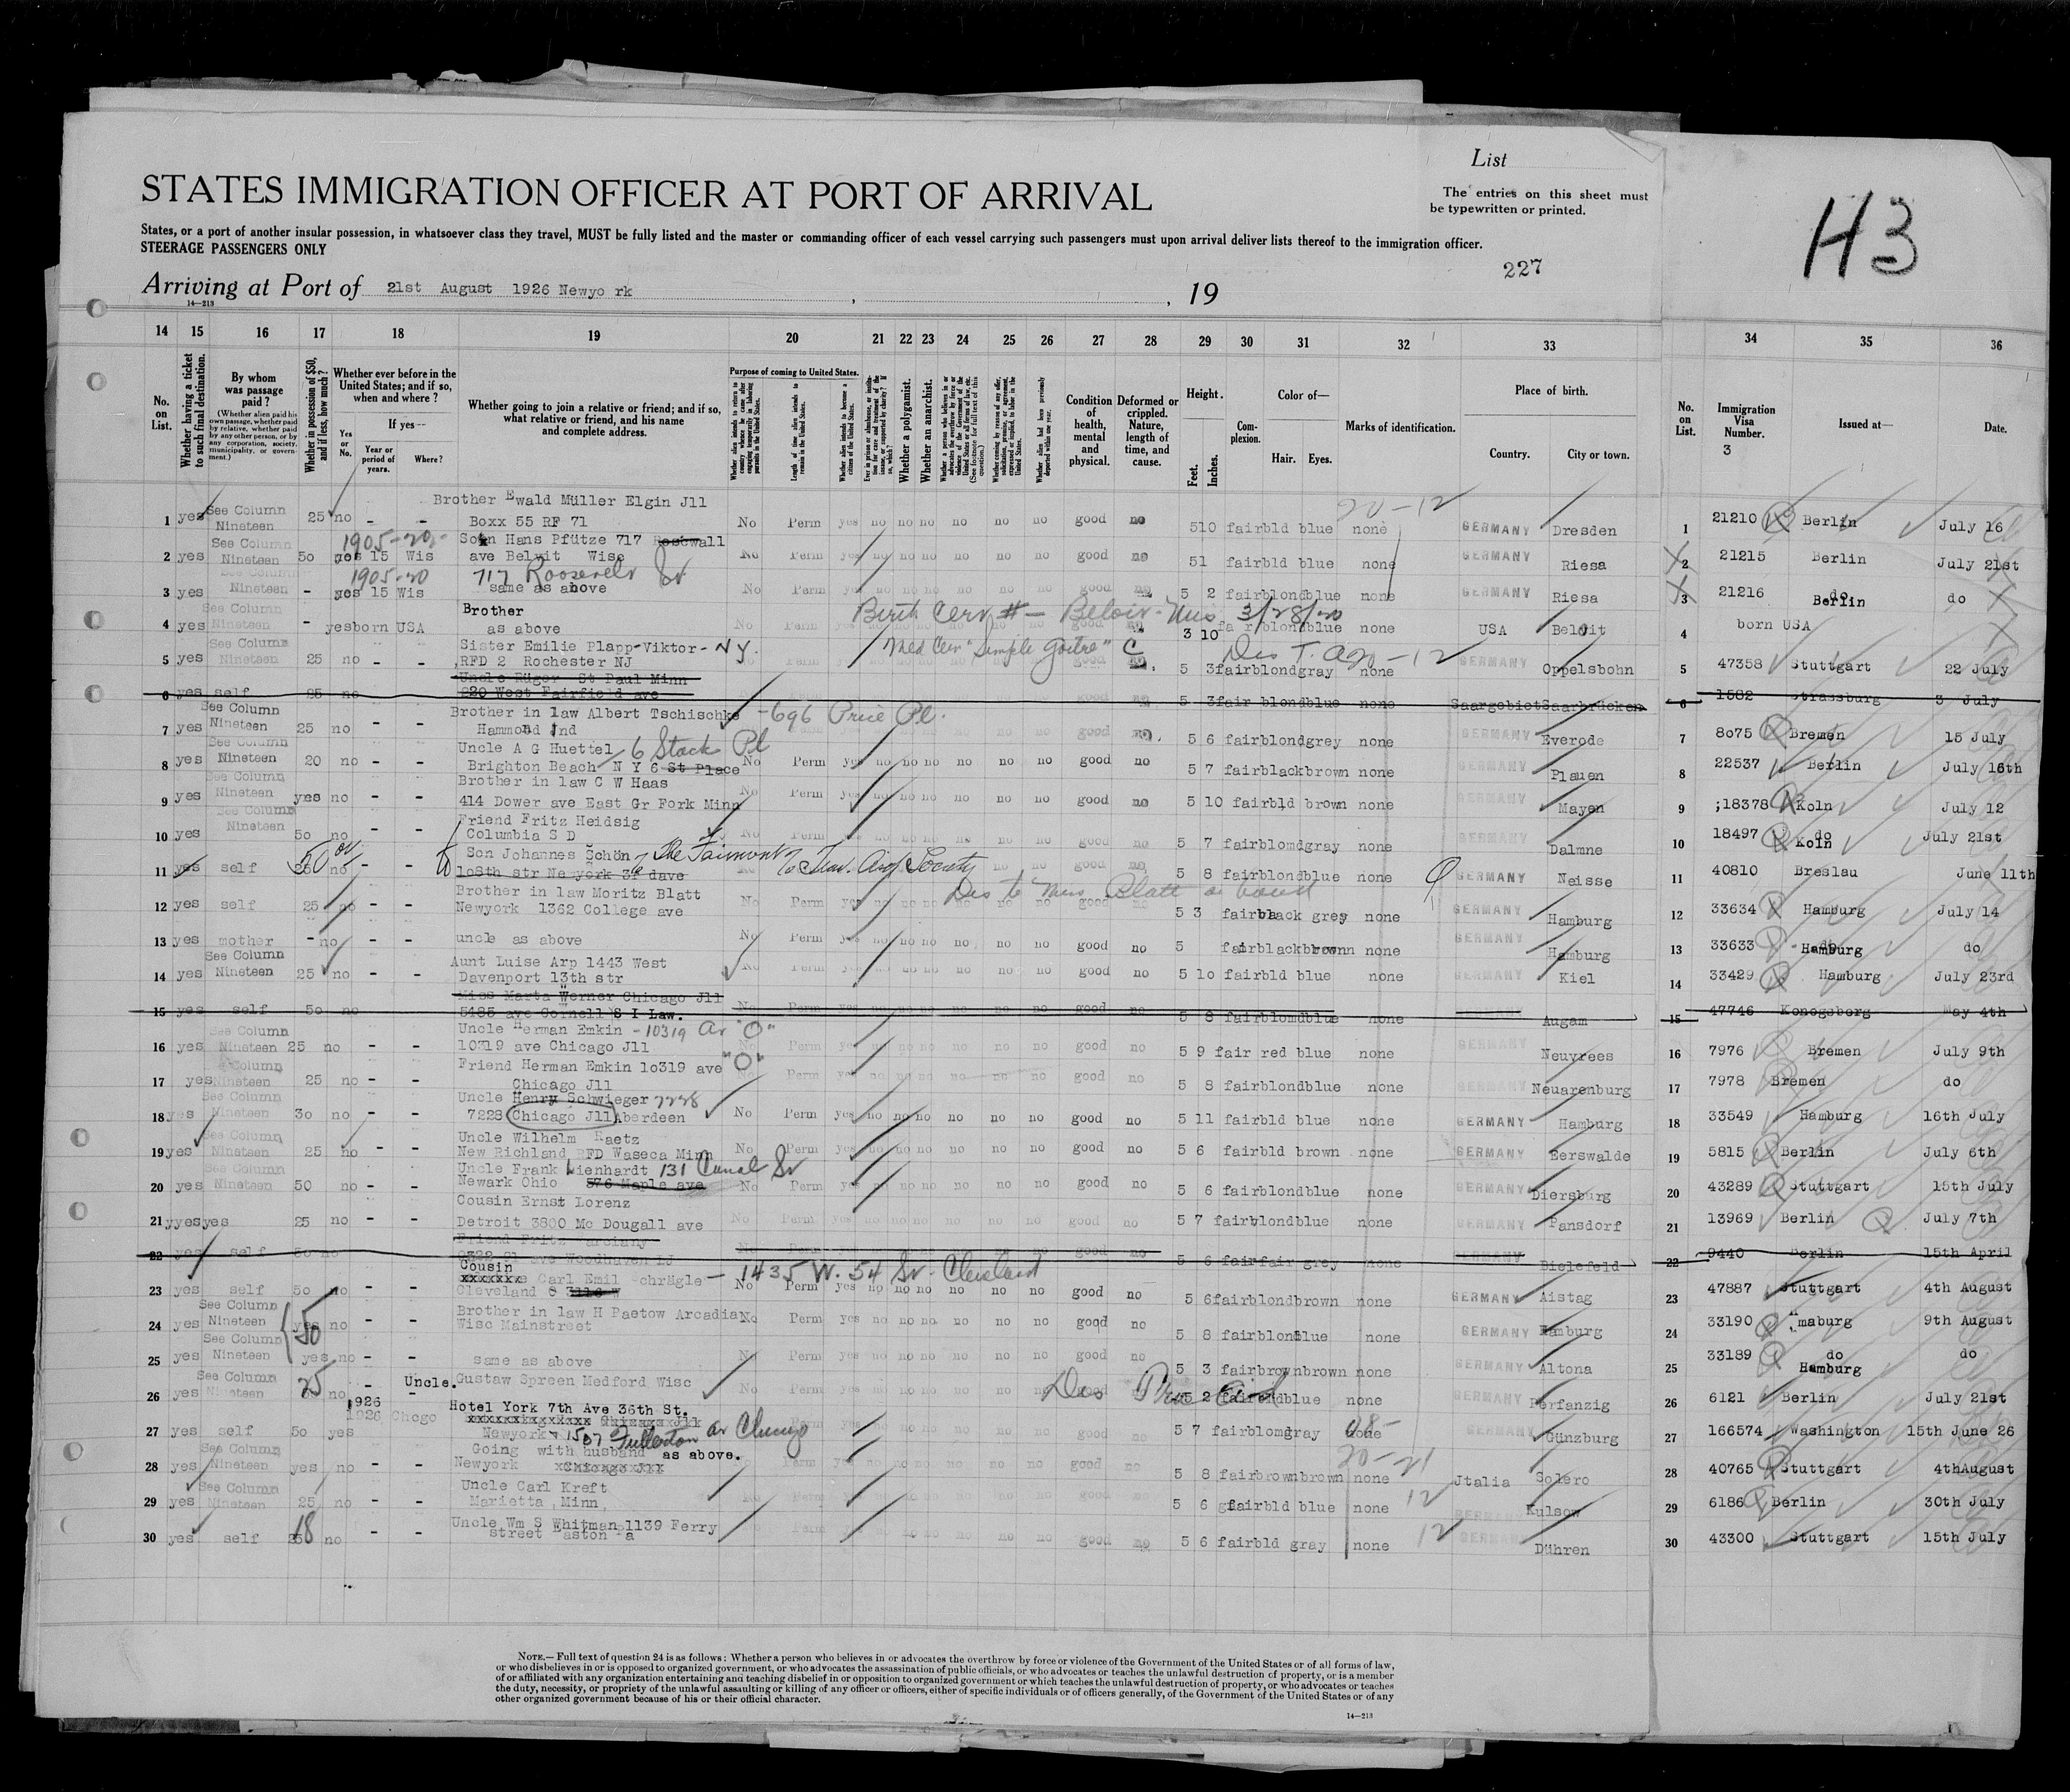 List
STATES IMMIGRATION OFFICER AT PORT OF ARRIVAL
The entries on this sheet must
be typewritten or printed.
H3
States, or a port of another insular possession, in whatsoever class they travel, MUST be fully listed and the master or commanding officer of each vessel carrying such passengers must upon arrival deliver lists thereof to the immigration officer.
STEERAGE PASSENGERS ONLY
227
Arriving at Port of 21st August 1926 Newyo rk , , 19
14—213
14 15 16 17 18 19 20 21 22 23 24 25 26 27 28 29 30 31 32 33 34 35 36
No. on List.
Whether having a ticket to such final destination.
By whom was passage paid ?
(Whether alien paid his own passage, whether paid by relative, whether paid by any other person, or by any corporation, society, municipality, or government.)
Whether in possession of $50, and if less, how much ?
Whether ever before in the United States; and if so, when and where ?
If yes—
Yes or No.
Year or period of years.
Where?
Whether going to join a relative or friend; and if so, what relative or friend, and his name and complete address.
Purpose of coming to United States.
Length of time alien intends to remain in the United States.
Whether alien intends to become a citizen of the United States.
Whether a polygamist.
Whether an anarchist.
Condition of health, mental and physical.
Deformed or crippled. Nature, length of time, and cause.
Height.
Feet. Inches.
Complexion.
Color of—
Hair. Eyes.
Marks of identification.
Place of birth.
Country. City or town.
No. on List.
Immigration Visa Number.
3
Issued at—
Date.
Brother Ewald Müller Elgin Jll 20-12
1 yes See Column Nineteen 25 no - - Boxx 55 RF 71 No Perm yes no no no no no no good no 510 fair bld blue none GERMANY Dresden 1 21210 Berlin July 16
See Column 1905-20 Hans Pfütze 717
2 yes Nineteen 50 yes 15 Wis ave Beloit Wisc No Perm yes no no no no no no good no 51 fair bld blue none GERMANY Riesa 2 21215 Berlin July 21st
1905-20 717 Roosevelt
3 yes Nineteen - yes 15 Wis same as above No Perm yes no no no no no no good 5 2 fair blond blue none GERMANY Riesa 3 21216 do Berlin do
See Column Brother Birth Cert # - Beloit - Wis 3/28/20
4 yes Nineteen - yes born USA as above 3 10 blond blue none USA Beloit 4 born USA
See Column Sister Emilie Plapp-Viktor- N Y. Med Cert "Simple Goitre" C 20-12
5 yes Nineteen 25 no - - RFD 2 Rochester NJ good 5 3 fair blond gray none GERMANY Oppelsbohn 5 47358 Stuttgart 22 July
Uncle Rüger St Paul Minn
6 yes self 25 no 220 West Fairfield ave 5 3 fair blond blue none Saargebiet Saarbrucken 6 1582 Strassburg 3 July
See Column Brother in law Albert Tschischke -696 Price Pl.
7 yes Nineteen 25 no - - Hammond Ind good no. 5 6 fair blond grey none GERMANY Everode 7 8075 Bremen 15 July
See Column Uncle A G Huettel 6 Stack Pl
8 yes Nineteen 20 no - - Brighton Beach N Y 6 St Place No Perm yes no no no no no no good no 5 7 fair black brown none GERMANY Plauen 8 22537 Berlin July 16th
See Column Brother in law C W Haas
9 yes Nineteen yes no - - 414 Dower ave East Gr Fork Minn No Perm yes no no no no no no good no 5 10 fair bld brown none GERMANY Mayen 9 ;18378 Koln July 12
See Column Friend Fritz Heidsig
10 yes Nineteen 50 no - - Columbia S D No Perm yes no no no no no no good no 5 7 fair blomd gray none GERMANY Dalmne 10 18497 do Koln July 21st
50 Son Johannes Schön The Fairmont Trav. Aid Society
11 yes self no - - 108th str Newyork no no good no 5 8 fair blond blue none GERMANY Neisse 11 40810 Breslau June 11th
Brother in law Moritz Blatt Dis to Mrs. Blatt
12 yes self 25 no - - Newyork 1362 College ave No Perm yes no no no good 5 3 fair black grey none GERMANY Hamburg 12 33634 Hamburg July 14
13 yes mother - no - - uncle as above No Perm yes no no no no no no good no 5 fair black brown none GERMANY Hamburg 13 33633 Hamburg do
See Column Aunt Luise Arp 1443 West
14 yes Nineteen 25 no - - Davenport 13th str No Perm yes no no no no no no good no 5 10 fair bld blue none GERMANY Kiel 14 33429 Hamburg July 23rd
Miss Marta Werner Chicago Jll
15 yes self 50 no 5485 ave Cornell S I Law. No Perm yes no no no no no no good no 5 8 fair blomd blue none Augam 15 47746 Konogsberg May 4th
See Column Uncle Herman Emkin - 10319 Av "O"
16 yes Nineteen 25 no - - 10319 ave Chicago Jll Perm yes no no no no no no good no 5 9 fair red blue none GERMANY Neuvrees 16 7976 Bremen July 9th
Column Friend Herman Emkin 1o319 ave "O"
17 yes Nineteen 25 no - - Chicago Jll Perm yes no no no no no no good no 5 8 fair blond blue none GERMANY Neuarenburg 17 7978 Bremen do
See Column Uncle Henry Schwieger 7228
18 yes Nineteen 30 no - - 7228 Chicago Jll Aberdeen No Perm yes no no no no no no good no 5 11 fair bld blue none GERMANY Hamburg 18 33549 Hamburg 16th July
See Column Uncle Wilhelm Raetz
19 yes Nineteen 25 no - - New Richland RFD Waseca Minn No Perm yes no no no no no no good no 5 6 fair bld brown none GERMANY Eerswalde 19 5815 Berlin July 6th
See Column Uncle Frank Lienhardt 131 Canal St
20 yes Nineteen 50 no - - Newark Ohio 576 Maple ave No Perm yes no no no no no no good no 5 6 fair blond blue none GERMANY Diersburg 20 43289 Stuttgart 15th July
Cousin Ernst Lorenz
21 yyesyes 25 no - - Detroit 3800 Mc Dougall ave No Perm yes no no no no no no good no 5 7 fair blond blue none GERMANY Pansdorf 21 13969 Berlin July 7th
Friend Fritz
22 yes self 50 no ave Woodhaven LJ No Perm no no no no no no good no 5 6 fair fair grey none GERMANY Bielefeld 22 9440 Berlin 15th April
Cousin
xxxxxxx Carl Emil chrägle - 1435 W. 54 St. Cleveland
23 yes self 50 no - - Cleveland No Perm yes no no no no no no good no 5 6 fair blond brown none GERMANY Aistag 23 47887 Stuttgart 4th August
See Column 50 Brother in law H Paetow Arcadia
24 yes Nineteen yes no - - Wisc Mainstreet No Perm yes no no no no no no good no 5 8 fair blond blue none GERMANY Hamburg 24 33190 Hamburg 9th August
See Column
25 yes Nineteen yes no - - same as above No Perm yes no no no no no no good no 5 3 fair brown brown none GERMANY Altona 25 33189 do Hamburg do
See Column 25 Uncle. Gustaw Spreen Medford Wisc
26 yes Nineteen no - - No Perm yes no no no no no good no 5 2 fair blond blue none GERMANY 26 6121 Berlin July 21st
1926 Hotel York 7th Ave 36th St.
1926 Chcgo xxxxxxxxxxxxx Chicago Jll
27 yes self 50 yes Newyork 1507 Fullerton av Chicago good no 5 7 fair blomd gray none GERMANY Günzburg 27 166574 Washington 15th June 26
See Column Going with husband as above. 20-21
28 yes Nineteen yes no - - Newyork Chicago Jll Perm yes no no no no no no good no 5 8 fair brown brown none Jtalia Solero 28 40765 Stuttgart 4thAugust
See Column Uncle Carl Kreft
29 yes Nineteen 25 no - - Marietta Minn no no no no no no good no 5 6 fair bld blue none 12 Kulsow 29 6186 Berlin 30th July
18 Uncle Wm S Whitman 1139 Ferry
30 yes self no - - street aston Pa no no no no no good no 5 6 fair bld gray none 12 GERMANY Dühren 30 43300 Stuttgart 15th July
NOTE.—Full text of question 24 is as follows: Whether a person who believes in or advocates the overthrow by force or violence of the Government of the United States or of all forms of law,
or who disbelieves in or is opposed to organized government, or who advocates the assassination of public officials, or who advocates or teaches the unlawful destruction of property, or is a member
of or affiliated with any organization entertaining and teaching disbelief in or opposition to organized government or which teaches the unlawful destruction of property, or who advocates or teaches
the duty, necessity, or propriety of the unlawful assaulting or killing of any officer or officers, either of specific individuals or of officers generally, of the Government of the United States or of any
other organized government because of his or their official character.
14—213